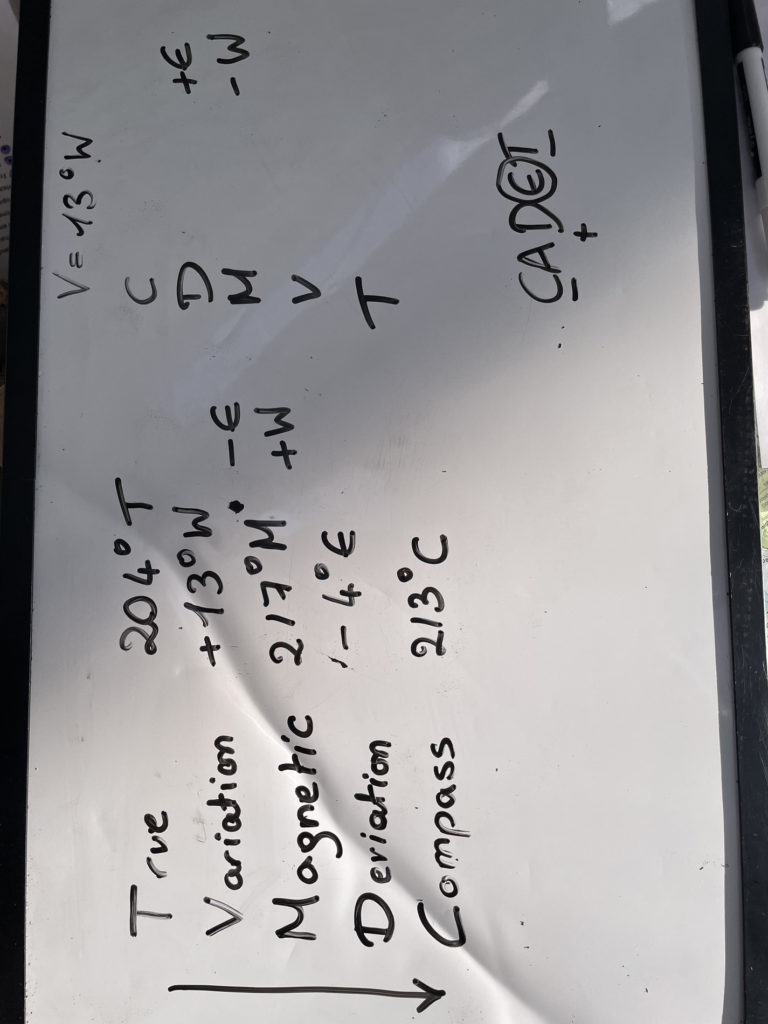 V = 13°W
True 204°T
Variation +13°W
Magnetic 217°M
Deviation - 4°E
Compass 213°C
-E
+W
C
D
M
V
T
+E
-W
CADET
- + -